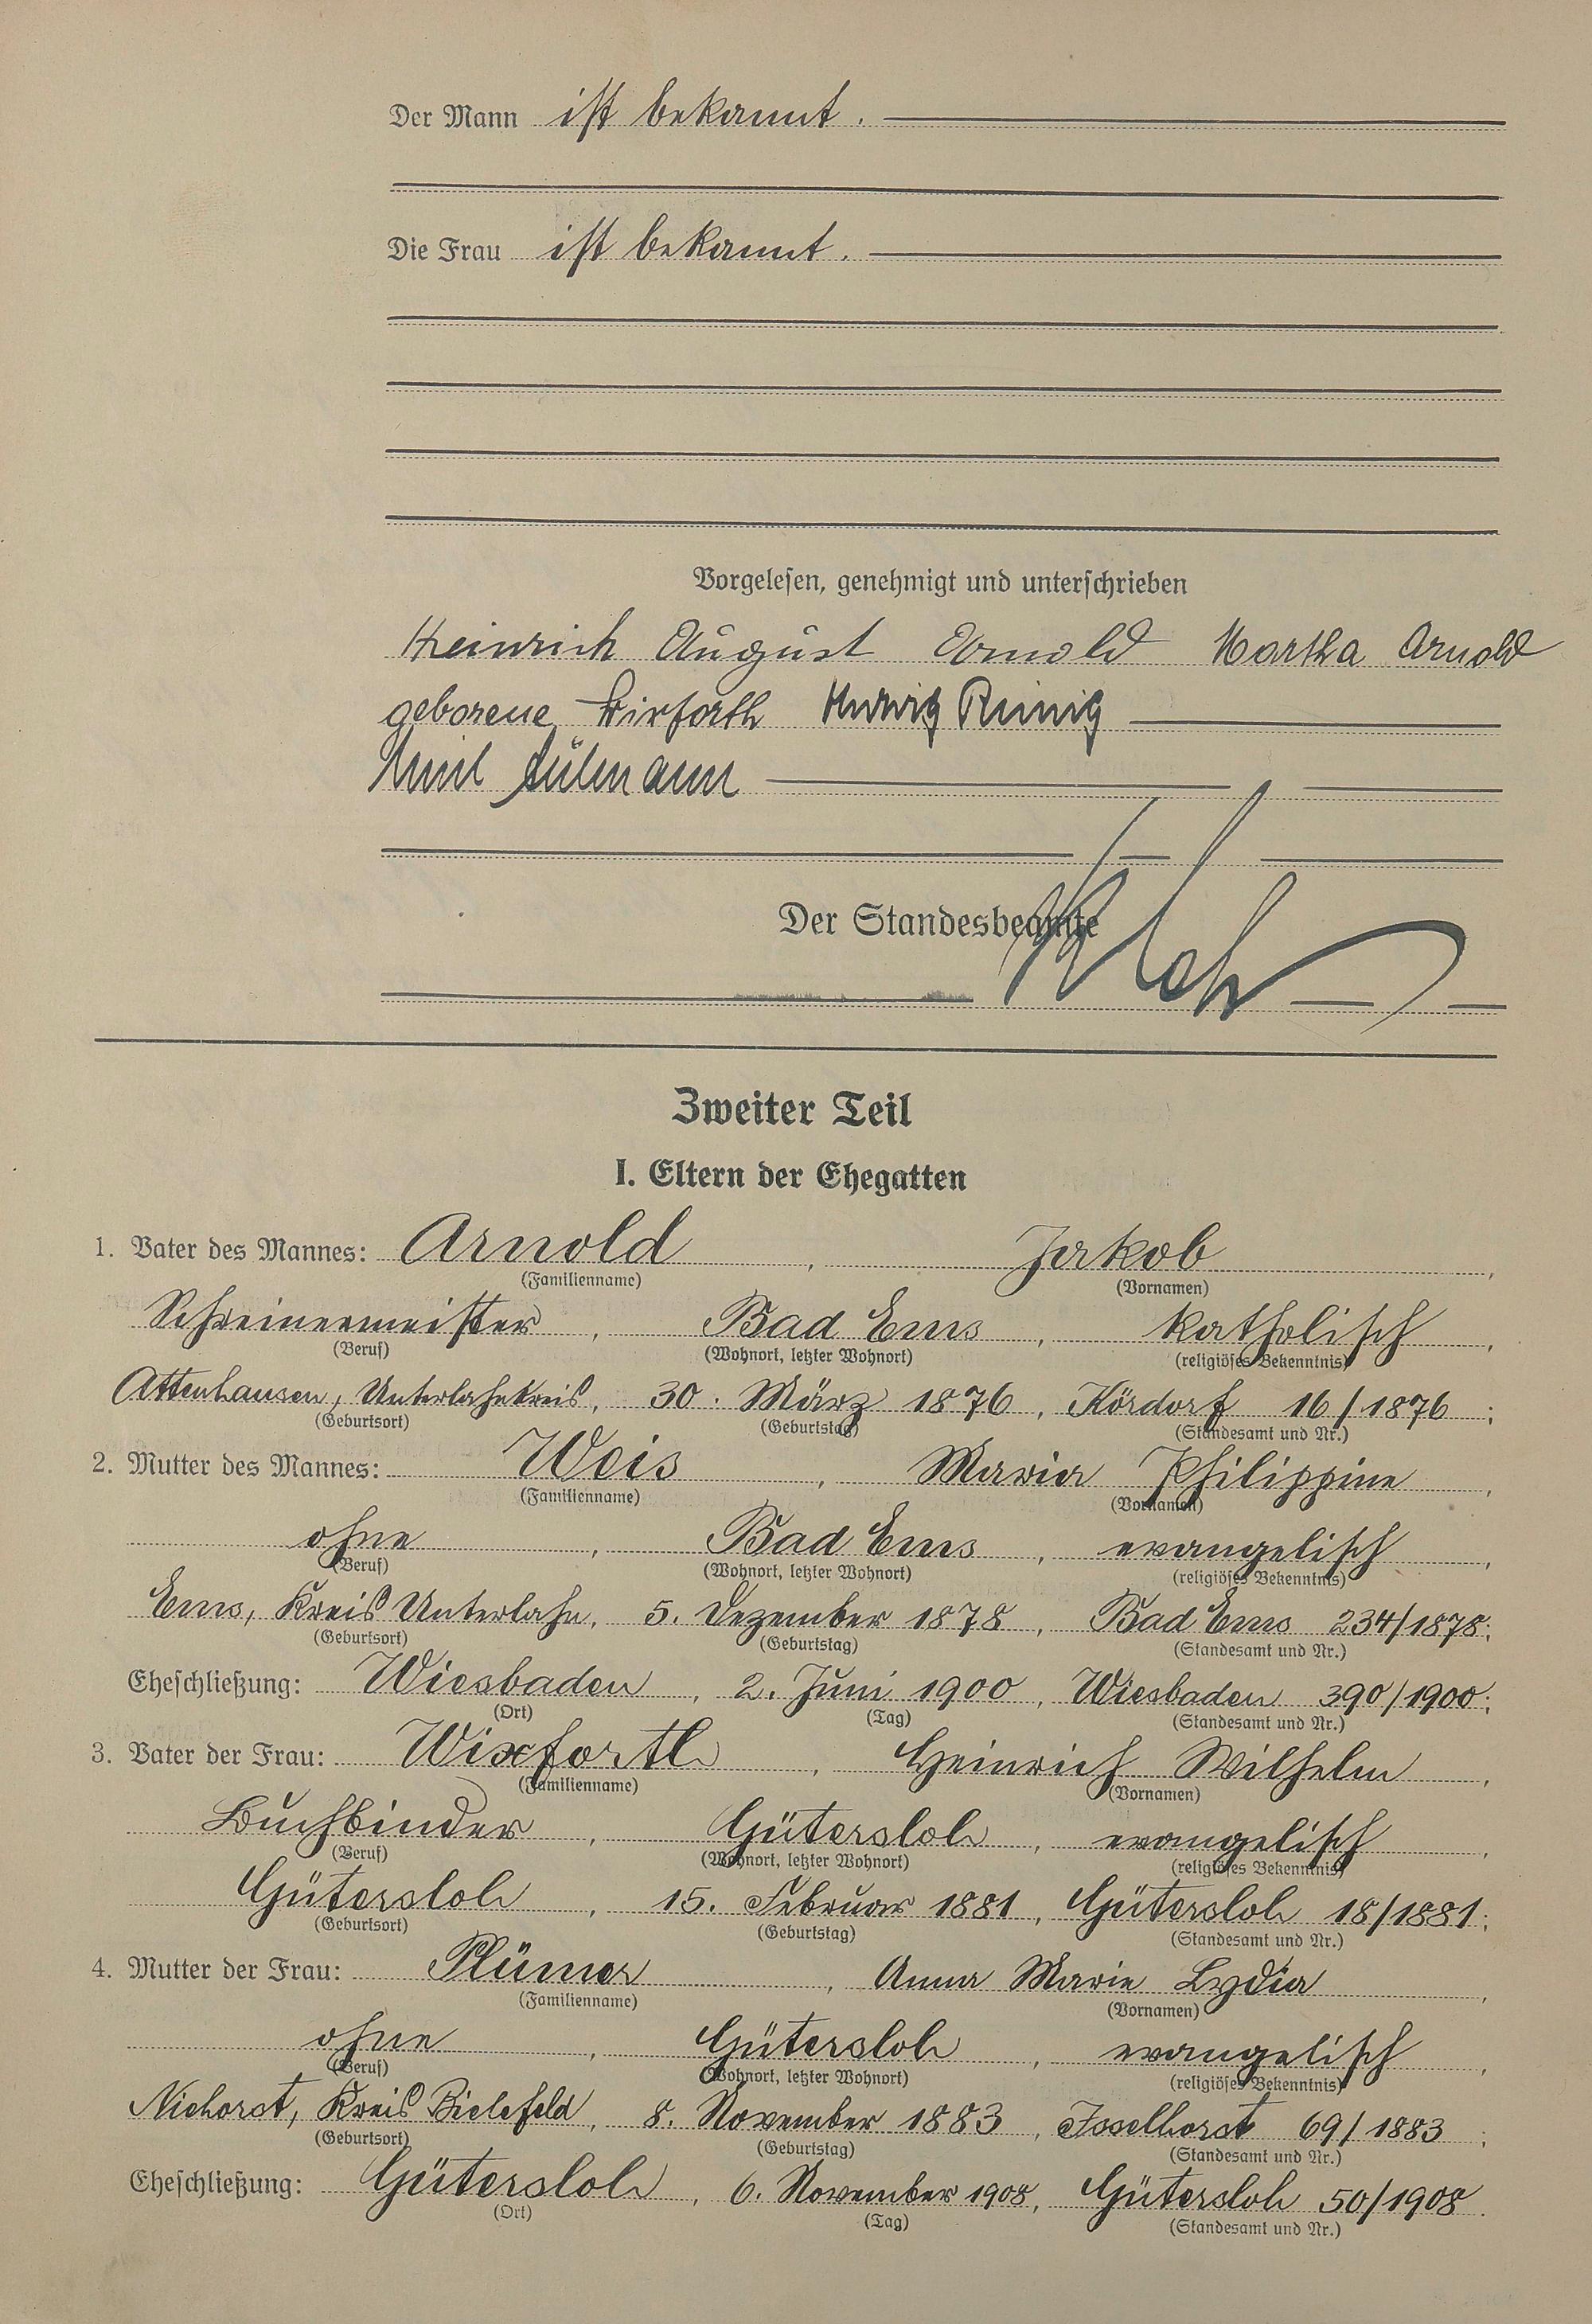 Der Mann ist bekannt.
Die Frau ist bekannt.
Vorgelesen, genehmigt und unterschrieben
Heinrich August Arnold Martha Arnold
geborene Wixforth
Emil
Der Standesbeamte
Zweiter Teil
I. Eltern der Ehegatten
1. Vater des Mannes: Arnold, Jakob,
(Familienname) (Vornamen)
Schreinermeister, Bad Ems, katholisch,
(Beruf) (Wohnort, letzter Wohnort) (religiöses Bekenntnis)
Attenhausen, Unterlahnkreis, 30. März 1876, Kördorf 16/1876;
(Geburtsort) (Geburtstag) (Standesamt und Nr.)
2. Mutter des Mannes: Weis, Maria Philippine,
(Familienname) (Vornamen)
ohne, Bad Ems, evangelisch,
(Beruf) (Wohnort, letzter Wohnort) (religiöses Bekenntnis)
Ems, Kreis Unterlahn, 5. Dezember 1878, Bad Ems 234/1878;
(Geburtsort) (Geburtstag) (Standesamt und Nr.)
Eheschließung: Wiesbaden, 2. Juni 1900, Wiesbaden 390/1900;
(Ort) (Tag) (Standesamt und Nr.)
3. Vater der Frau: Wixforth, Heinrich Wilhelm,
(Familienname) (Vornamen)
Buchbinder, Gütersloh, evangelisch,
(Beruf) (Wohnort, letzter Wohnort) (religiöses Bekenntnis)
Gütersloh, 15. Februar 1881, Gütersloh 18/1881;
(Geburtsort) (Geburtstag) (Standesamt und Nr.)
4. Mutter der Frau: Plümer, Anna Marie Lydia,
(Familienname) (Vornamen)
ohne, Gütersloh, evangelisch,
(Beruf) (Wohnort, letzter Wohnort) (religiöses Bekenntnis)
Niehorst, Kreis Bielefeld, 8. November 1883, Isselhorst 69/1883;
(Geburtsort) (Geburtstag) (Standesamt und Nr.)
Eheschließung: Gütersloh, 6. November 1908, Gütersloh 50/1908.
(Ort) (Tag) (Standesamt und Nr.)